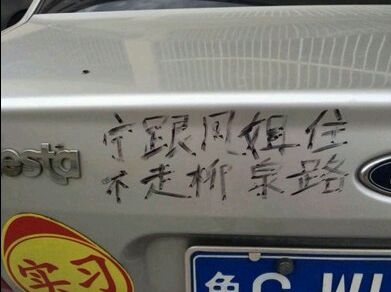 宁跟凤姐住
不走柳泉路
esta
实习
鲁C·WU